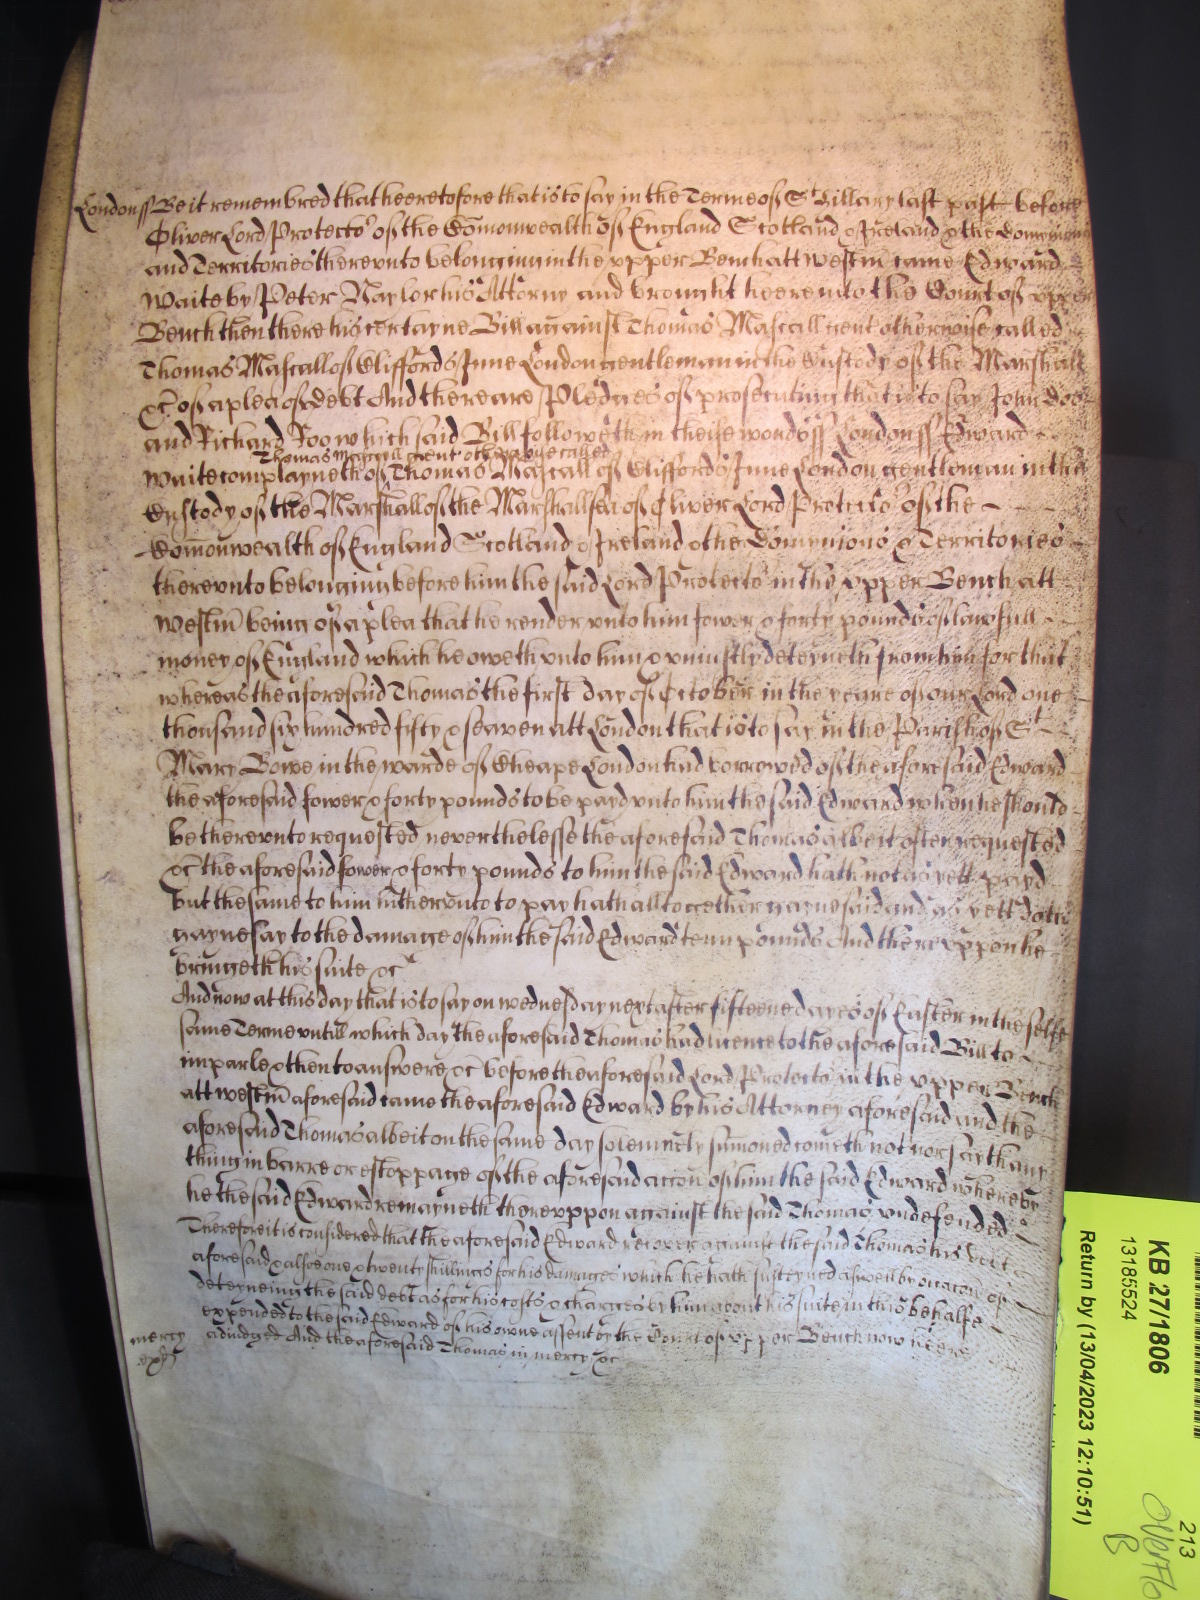 London ss Be it remembred that heeretofore that is to say in the Terme of St Hillary last past before
Oliver Lord Protector of the Comonwealth of England Scotland & Ireland & the Dominions
and Territories therevnto belonging in the vpper Bench att Westm̄ came Edward
Waite by Peter Naylor his Attorny and brought heere into the Court of vpper
Bench then there his certayne Bill against Thomas Mascall gent otherwise called
Thomas Mascall of Cliffords Inne London gentleman in the Custody of the Marshall
&c of a plea of debt And there are Pledges of prosecuting that is to say John Doe
and Richard Roo which said Bill followeth in theise words ss London ss Edward
Thomas Mascall gent otherwise called
Waite complayneth of Thomas Mascall of Cliffords Inne London gentleman in the
Custody of the Marshall of the Marshallsea of Oliver Lord Protector of the
Comonwealth of England Scotland & Ireland & the Dominions & Territories
therevnto belonging before him the said Lord Protector in the vpper Bench att
Westm̄ being of a plea that he render vnto him fower & forty pounds of lawfull
money of England which he oweth vnto him & vniustly deteyneth from him for that
whereas the aforesaid Thomas the first day of October in the yeare of our Lord one
thousand six hundred fifty & seaven att London that is to say in the Parish of St
Mary Bowe in the warde of Cheape London had borrowed of the aforesaid Edward
the aforesaid fower & forty pounds to be payd vnto him the said Edward when he should
be therevnto requested neverthelesse the aforesaid Thomas albeit often requested
&c the aforesaid fower & forty pounds to him the said Edward hath not as yett payd
but the same to him hithervnto to pay hath alltogether gaynesaid and as yett doth
gaynesay to the damage of him the said Edward tenn pounds And therevppon he
bringeth his suite &c
And now at this day that is to say on wednesday next after fifteene dayes of Easter in the selfe
same Terme vntill which day the aforesaid Thomas had licence to the aforesaid Bill to
imparle & then to answere &c before the aforesaid Lord Protector in the vpper Bench
att Westm̄ aforesaid came the aforesaid Edward by his Attorney aforesaid and the
aforesaid Thomas albeit on the same day solemnely sumoned cometh not nor sayth any
thing in barre or estoppage of the aforesaid accon of him the said Edward whereby
he the said Edward remayneth therevppon against the said Thomas vndefended
Therefore it is considered that the aforesaid Edward recover against the said Thomas his debt
aforesaid & alsoe one & twenty shillings for his damages which he hath susteyned aswell by occacon of
deteyneing the said debt as for his costs & charges by him about his suite in this behalfe
expended to the said Edward of his owne assent by the Court of vpper Bench now heere
mercy adiudged And the aforesaid Thomas in mercy &c
KB 27/1806
13185524
Return by (13/04/2023 12:10:51)
213
Overflo
B